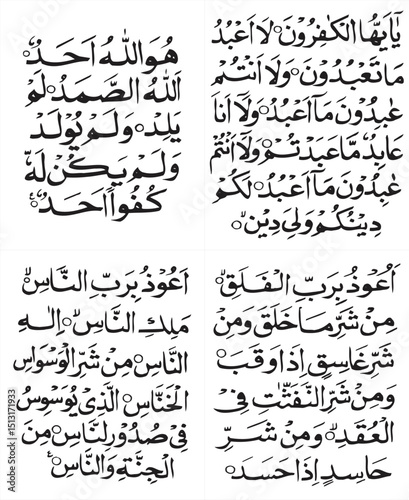 يٰۤاَيُّهَا الْكٰفِرُوْنَ ○ لَاۤ اَعْبُدُ
مَا تَعْبُدُوْنَ ○ وَلَاۤ اَنْتُمْ
عٰبِدُوْنَ مَاۤ اَعْبُدُ ○ وَلَاۤ اَنَا
عَابِدٌ مَّا عَبَدْتُّمْ ○ وَلَاۤ اَنْتُمْ
عٰبِدُوْنَ مَاۤ اَعْبُدُ ○ لَكُمْ
دِيْنُكُمْ وَلِيَ دِيْنِ ○
هُوَ اللّٰهُ اَحَدٌ ○
اَللّٰهُ الصَّمَدُ ○ لَمْ
يَلِدْ ○ وَلَمْ يُوْلَدْ
وَلَمْ يَكُنْ لَّهٗ
كُفُوًا اَحَدٌ ○
اَعُوْذُ بِرَبِّ الْفَلَقِ ○
مِنْ شَرِّ مَا خَلَقَ ○ وَمِنْ
شَرِّ غَاسِقٍ اِذَا وَقَبَ ○
وَمِنْ شَرِّ النَّفّٰثٰتِ فِى
الْعُقَدِ ○ وَمِنْ شَرِّ
حَاسِدٍ اِذَا حَسَدَ ○
اَعُوْذُ بِرَبِّ النَّاسِ ○
مَلِكِ النَّاسِ ○ اِلٰهِ
النَّاسِ ○ مِنْ شَرِّ الْوَسْوَاسِ
الْخَنَّاسِ ○ الَّذِيْ يُوَسْوِسُ
فِيْ صُدُوْرِ النَّاسِ ○ مِنَ
الْجِنَّةِ وَالنَّاسِ ○
Adobe Stock | #1513171933